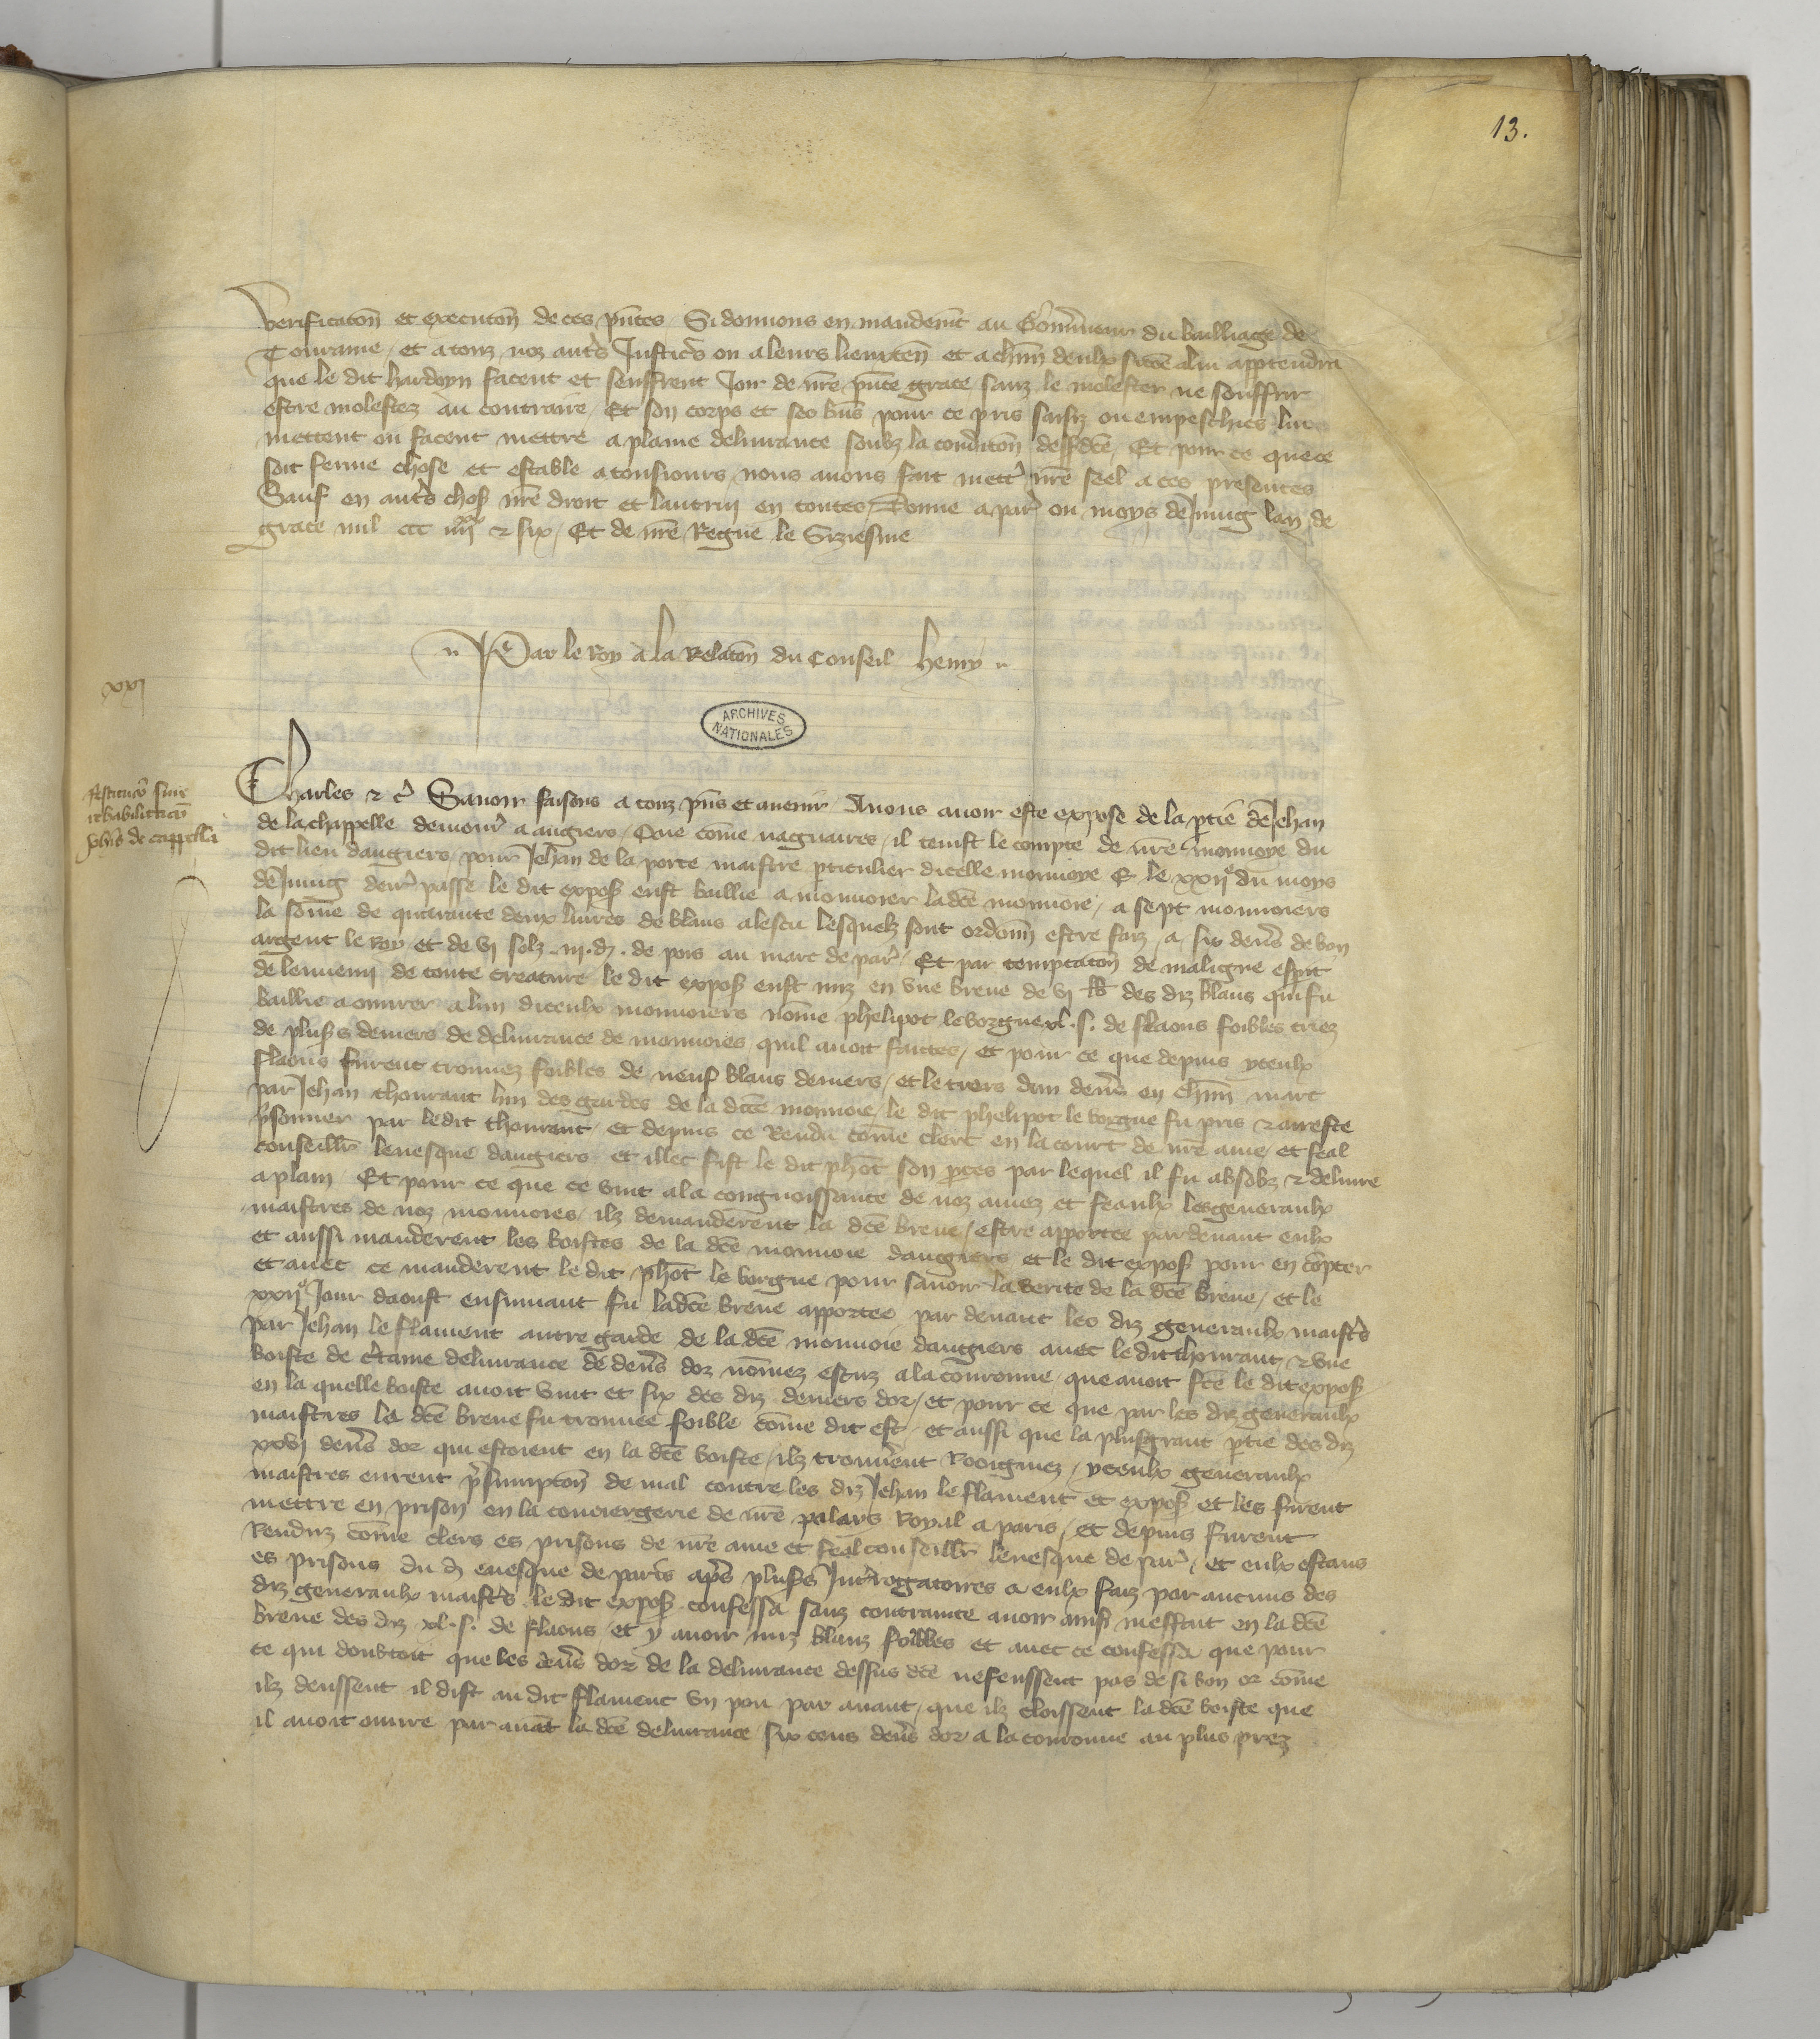 13.
verificaton et executon de ces pntes Si donnons en mandemt au Gouvneur du bailliage de
Touraine et a touz noz autrs Justicrs ou a leurs lieuxten et a chun deulx sicoe a lui apptendra
que le dit hardoyn facent et seuffrent Joir de nre pnte grace sanz le molester ne souffrir
estre molestez au contraire Et son corps et ses bns pour ce pris saisiz ou empeschies lui
mettent ou facent mettre a plaine delivrance soubz la condicon dessdce Et pour ce que ce
soit ferme chose et estable a tousiours nous avons fait mettr nre seel a ces presentes
Sauf en autrs chos nre droit et lautruy en toutes Donne a par ou moys de Juing lan de
grace mil ccc iiiixx & six Et de nre Regne le Siziesme
Par le Roy a la Relacon du Conseil henry
xxi
ARCHIVES NATIONALES
Charles & c Savoir faisons a touz pns et avenir Avons avoir este expose de la ptie de Jehan
de la chappelle demour a angiers Que come naguaires il tenist le compte de nre monnoye du
dit lieu dangiers pour Jehan de la porte maistre pticulier dicelle monnoye Et le xxiie du moys
de Juing derr passe le dit expos eust baillie a monnoier ladce monnoie a sept monnoiers
la some de quarante deux livres de blans a lescu lesquelz sont ordonn estre faiz a six denrs de bon
argent le Roy et de vi solz iii d. de pois au marc de par Et par temptacon de maligne esprit
de lennemi de toute creature le dit expos eust mis en une breve de vi lb des diz blans qui fu
baillie a ouvrer a lun diceulx monnoiers nome phelipot le borgne xl. s. de flaons foibles triez
de pluss deniers de delivrance de monnoies quil avoit faictes et pour ce que depuis yceulx
flaons furent trouvez foibles de neuf blans deniers et le tiers dun denr en chun marc
par Jehan thourant lun des gardes de la dce monnoie le dit phelipot le borgne fu pris & arreste
prsonnier par le dit thourant et depuis ce Rendu come clerc en la court de nre ame et feal
conseillr levesque dangiers et illec fist le dit phot son pces par lequel il fu absolz & delivre
a plain Et pour ce que ce vint a la congnoissance de noz amez et feaulx les generaulx
maistres de noz monnoies ilz demanderent la dce breve estre apportee pardevant eulx
et aussi manderent les boistes de la dce monnoie dangiers et le dit expos pour en copter
et avec ce manderent le dit phot le borgne pour savoir la verite de la dce breve et le
xxiie Jour daoust ensuivant fu ladce breve apportee par devant les diz generaulx maistrs
par Jehan le flament autre garde de la dce monnoie dangiers avec le dit thourant & une
boiste de crtaine delivrance de denrs dor nomez escuz a la couronne que avoit fce le dit expos
en la quelle boiste avoit vint et six des diz deniers dor et pour ce que par les diz generaulx
maistres la dce breve fu trouvee foible come dit est et aussi que la plusgrant ptie des diz
xxvi denrs dor qui estoient en la dce boiste ilz trouvrent Roongniez yceulx generaulx
maistres eurent prsumpcon de mal contre les diz Jehan le flament et expos et les firent
mettre en prison en la conciergerie de nre palays Royal a paris et depuis furent
Renduz come clers es prisons de nre ame et feal conseillr levesque de par et eulx estans
es prisons du d evesque de paris aprs pluss Intrrogatoires a eulx faiz par aucuns des
diz generaulx maistrs le dit expos confessa sanz contrainte avoir ainsi meffait en la dce
breve des diz xl. s. de flaons et y avoir mis blans foibles et avec ce confessa que pour
ce qui doubtoit que les denrs dor de la delivrance dessus dce ne feussent pas de si bon or come
ilz deussent il dist au dit flament un pou par avant que ilz cloissent la dce boiste que
il avoit ouvre par avat la dce delivrance six cens denrs dor a la couronne au plus prez